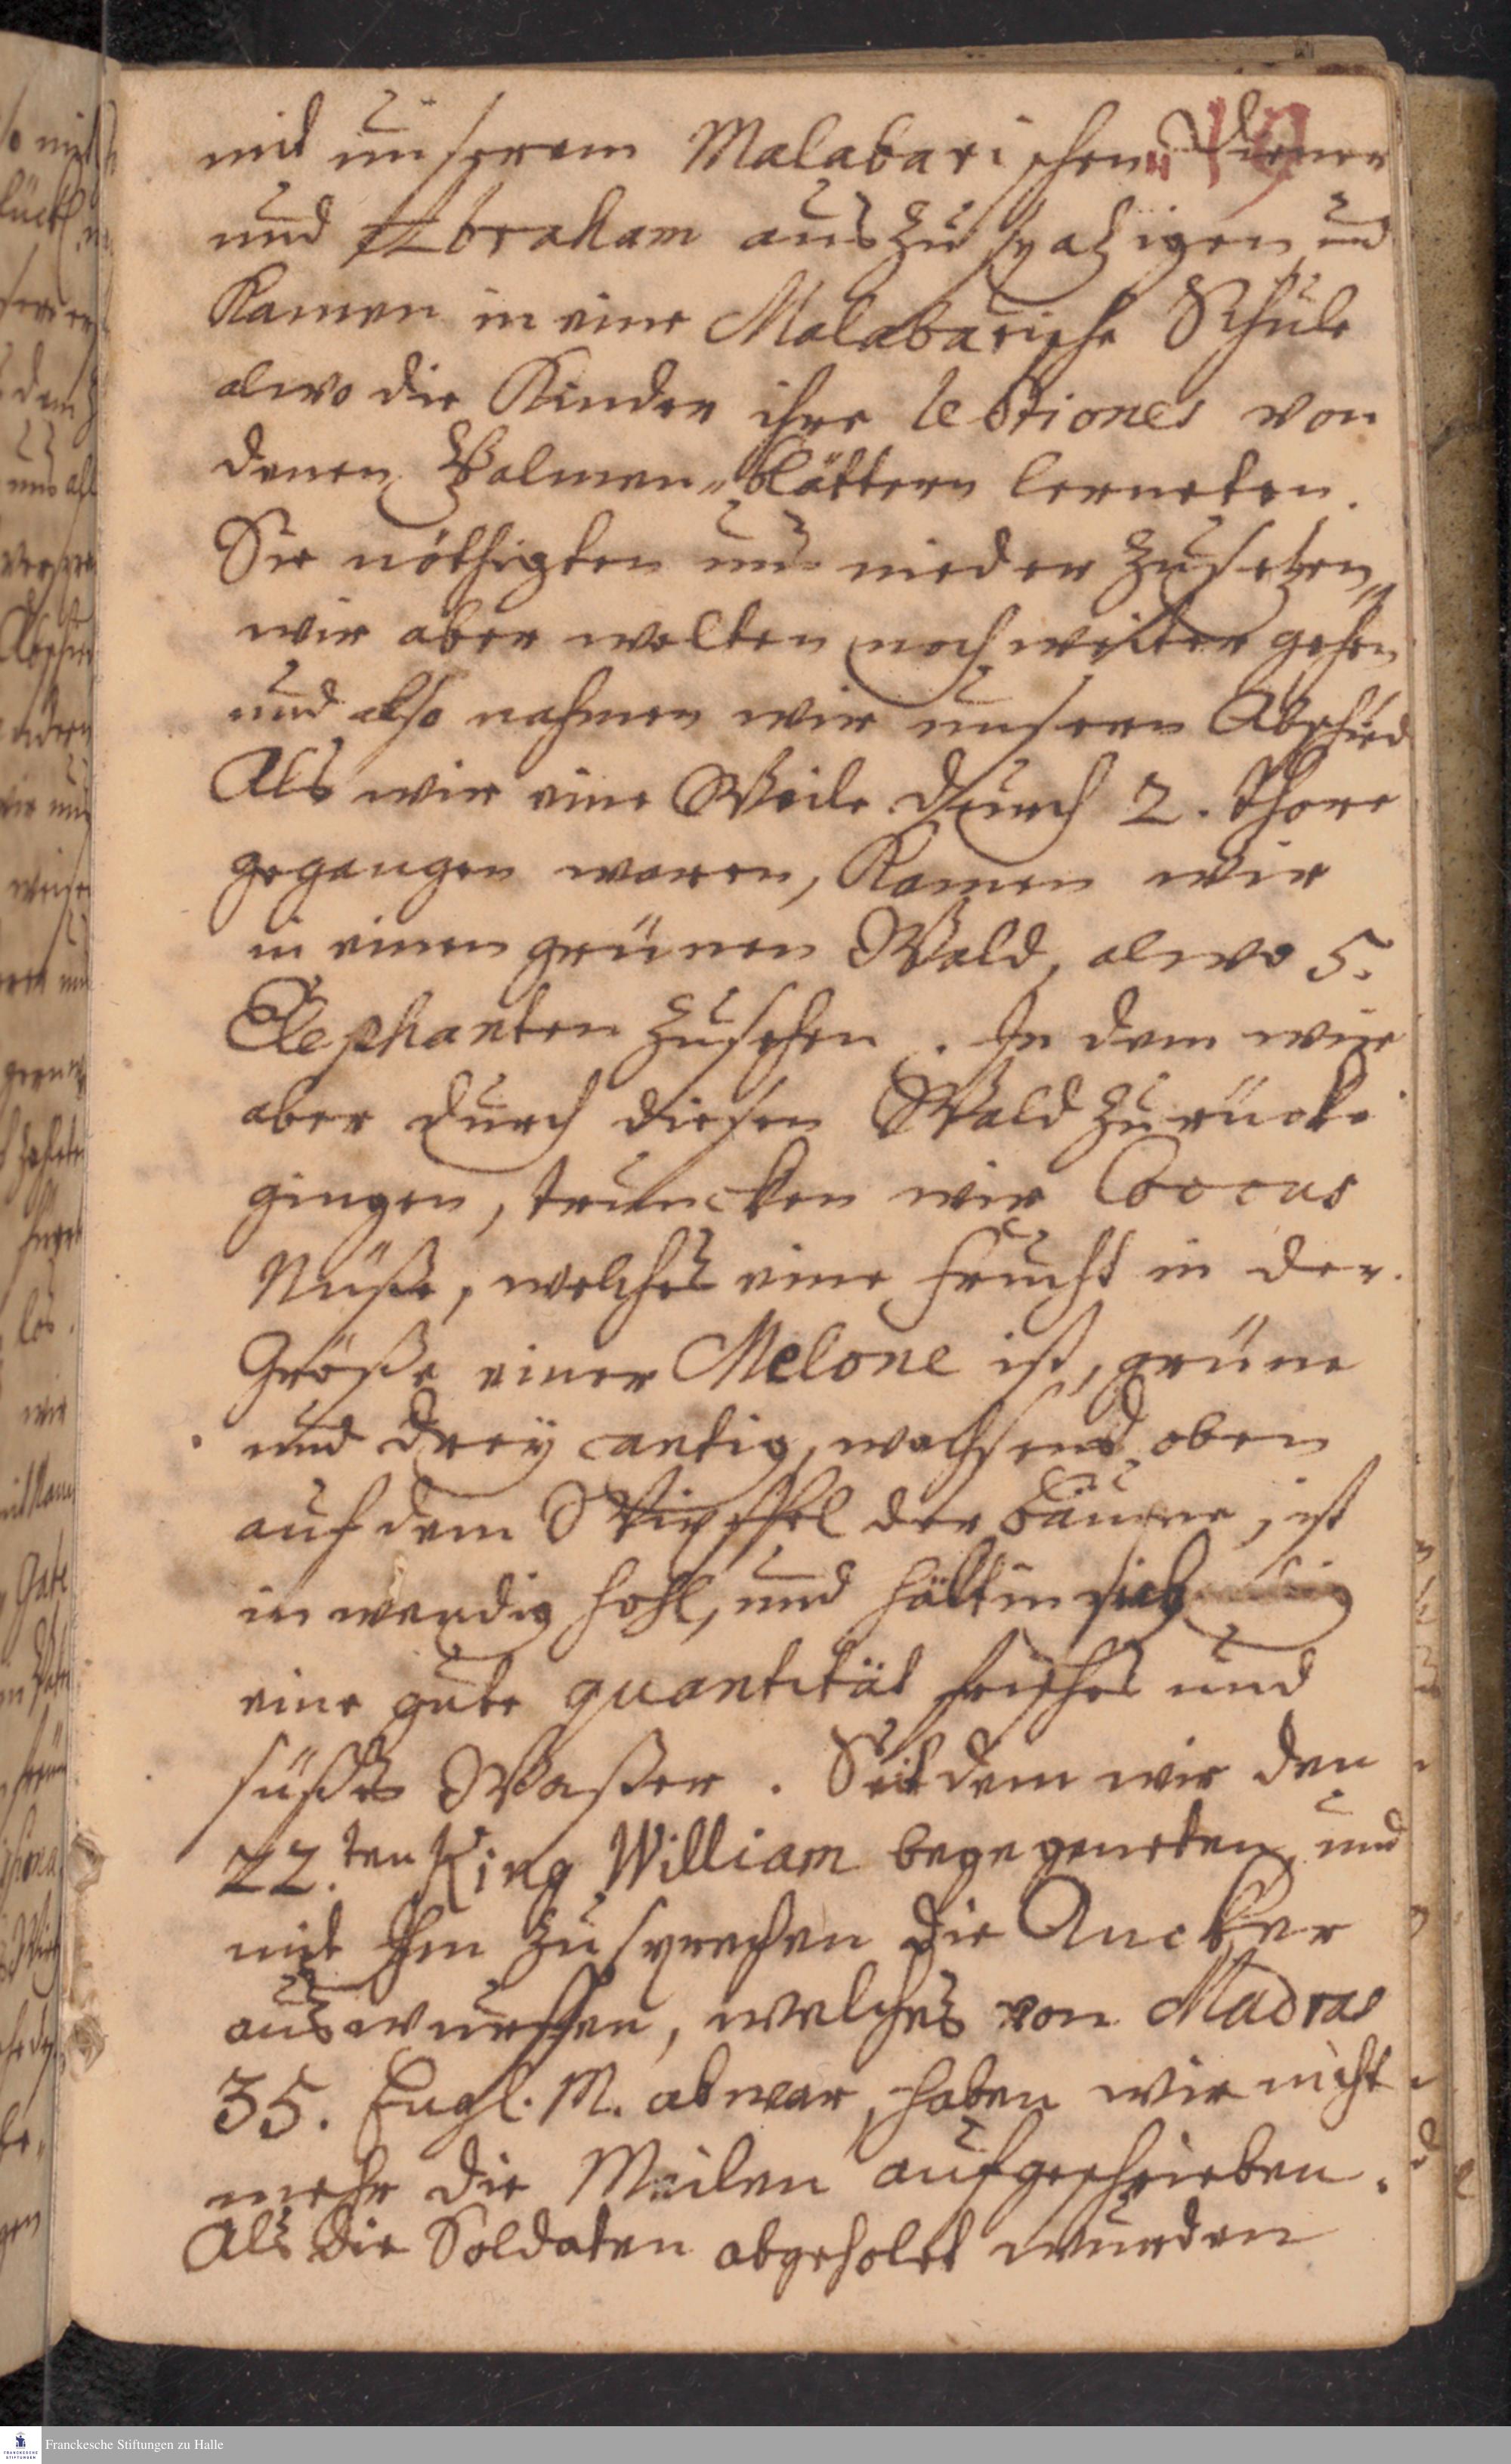 mit unserem Malabarischen Diener
19
und Abraham auszuspatzigen, und
Kamen in eine Malabarische Schule
alwo die Kinder ihre lectiones von
denen Palmen-blättern lerneten.
Sie nöthigten uns nieder zusetzen,
wir aber wolten noch weiter gehen
und also nahmen wir unsern Abschied
Als wir eine Weile durch 2. Thore
gegangen waren, Kamen wir
in einen grünen Wald, alwo 5.
Elephanten zusehen. In dem wir
aber durch diesen Wald zurücke
gingen, truncken wir Coocus
Nüße, welches eine Frucht in der
Größe einer Melone ist, grüne
und drey cantig, wachsend oben
auf dem Wipffel der Bäume, ist
inwendig hohl, und hält in sich
eine gute quantität frisches und
süßes Waßer. Seit dem wir den
22.ten King William begegneten, und
mit Ihm zusprechen die Ancker
auswurffen, welches von Madras
35. Engl. M. ab war, haben wir nicht
mehr die Meilen aufgeschrieben.
Als die Soldaten abgeholet wurden
Franckesche Stiftungen zu Halle